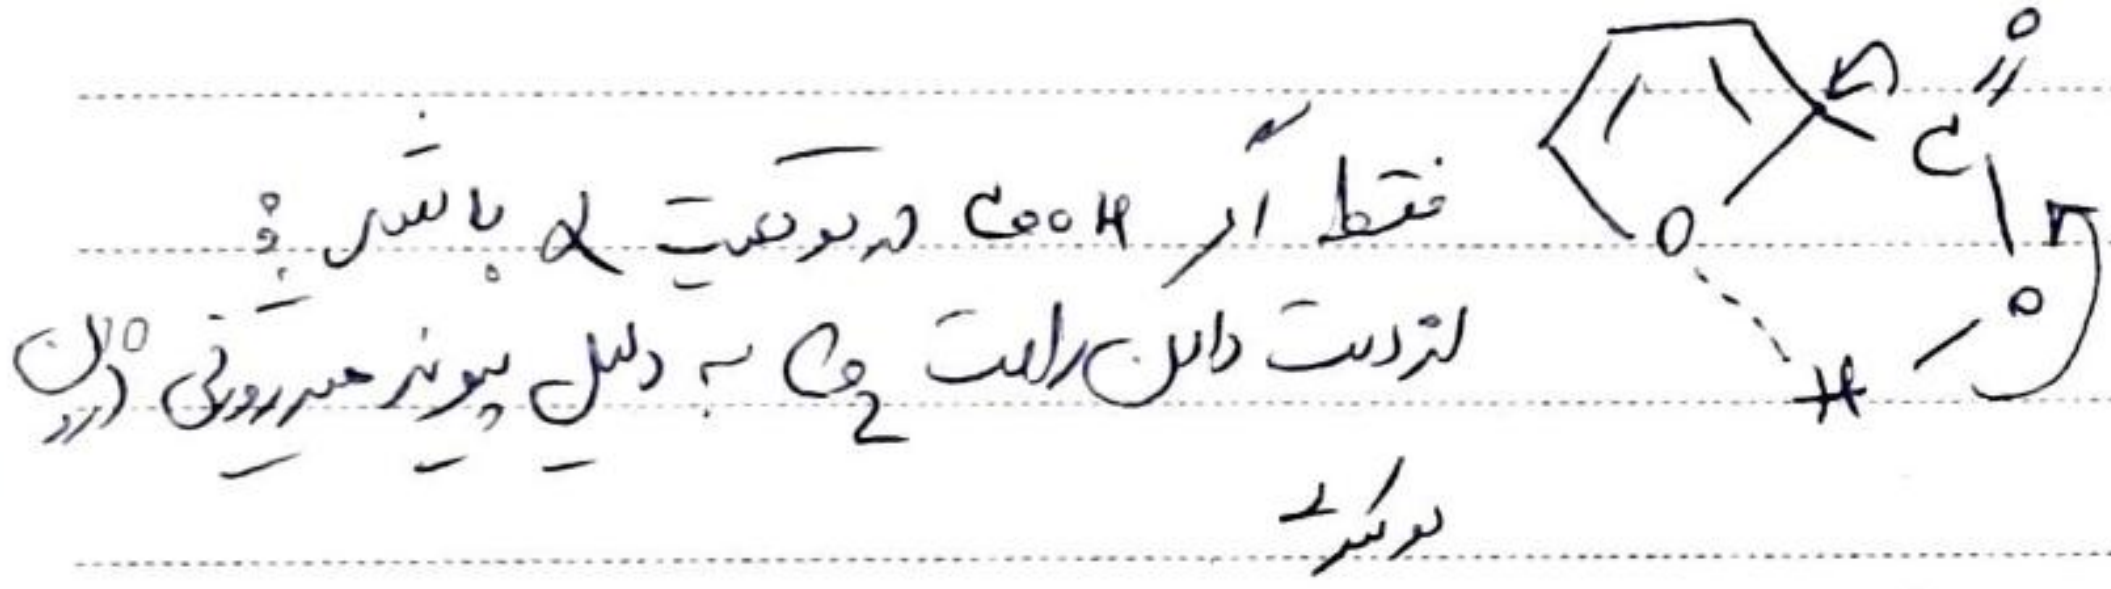 فقط اگر COOH در موقعیت α باشد :
از دست دادن راحت CO2 به دلیل پیوند هیدروژنی درون
مولکولی
O
C
O
O
H